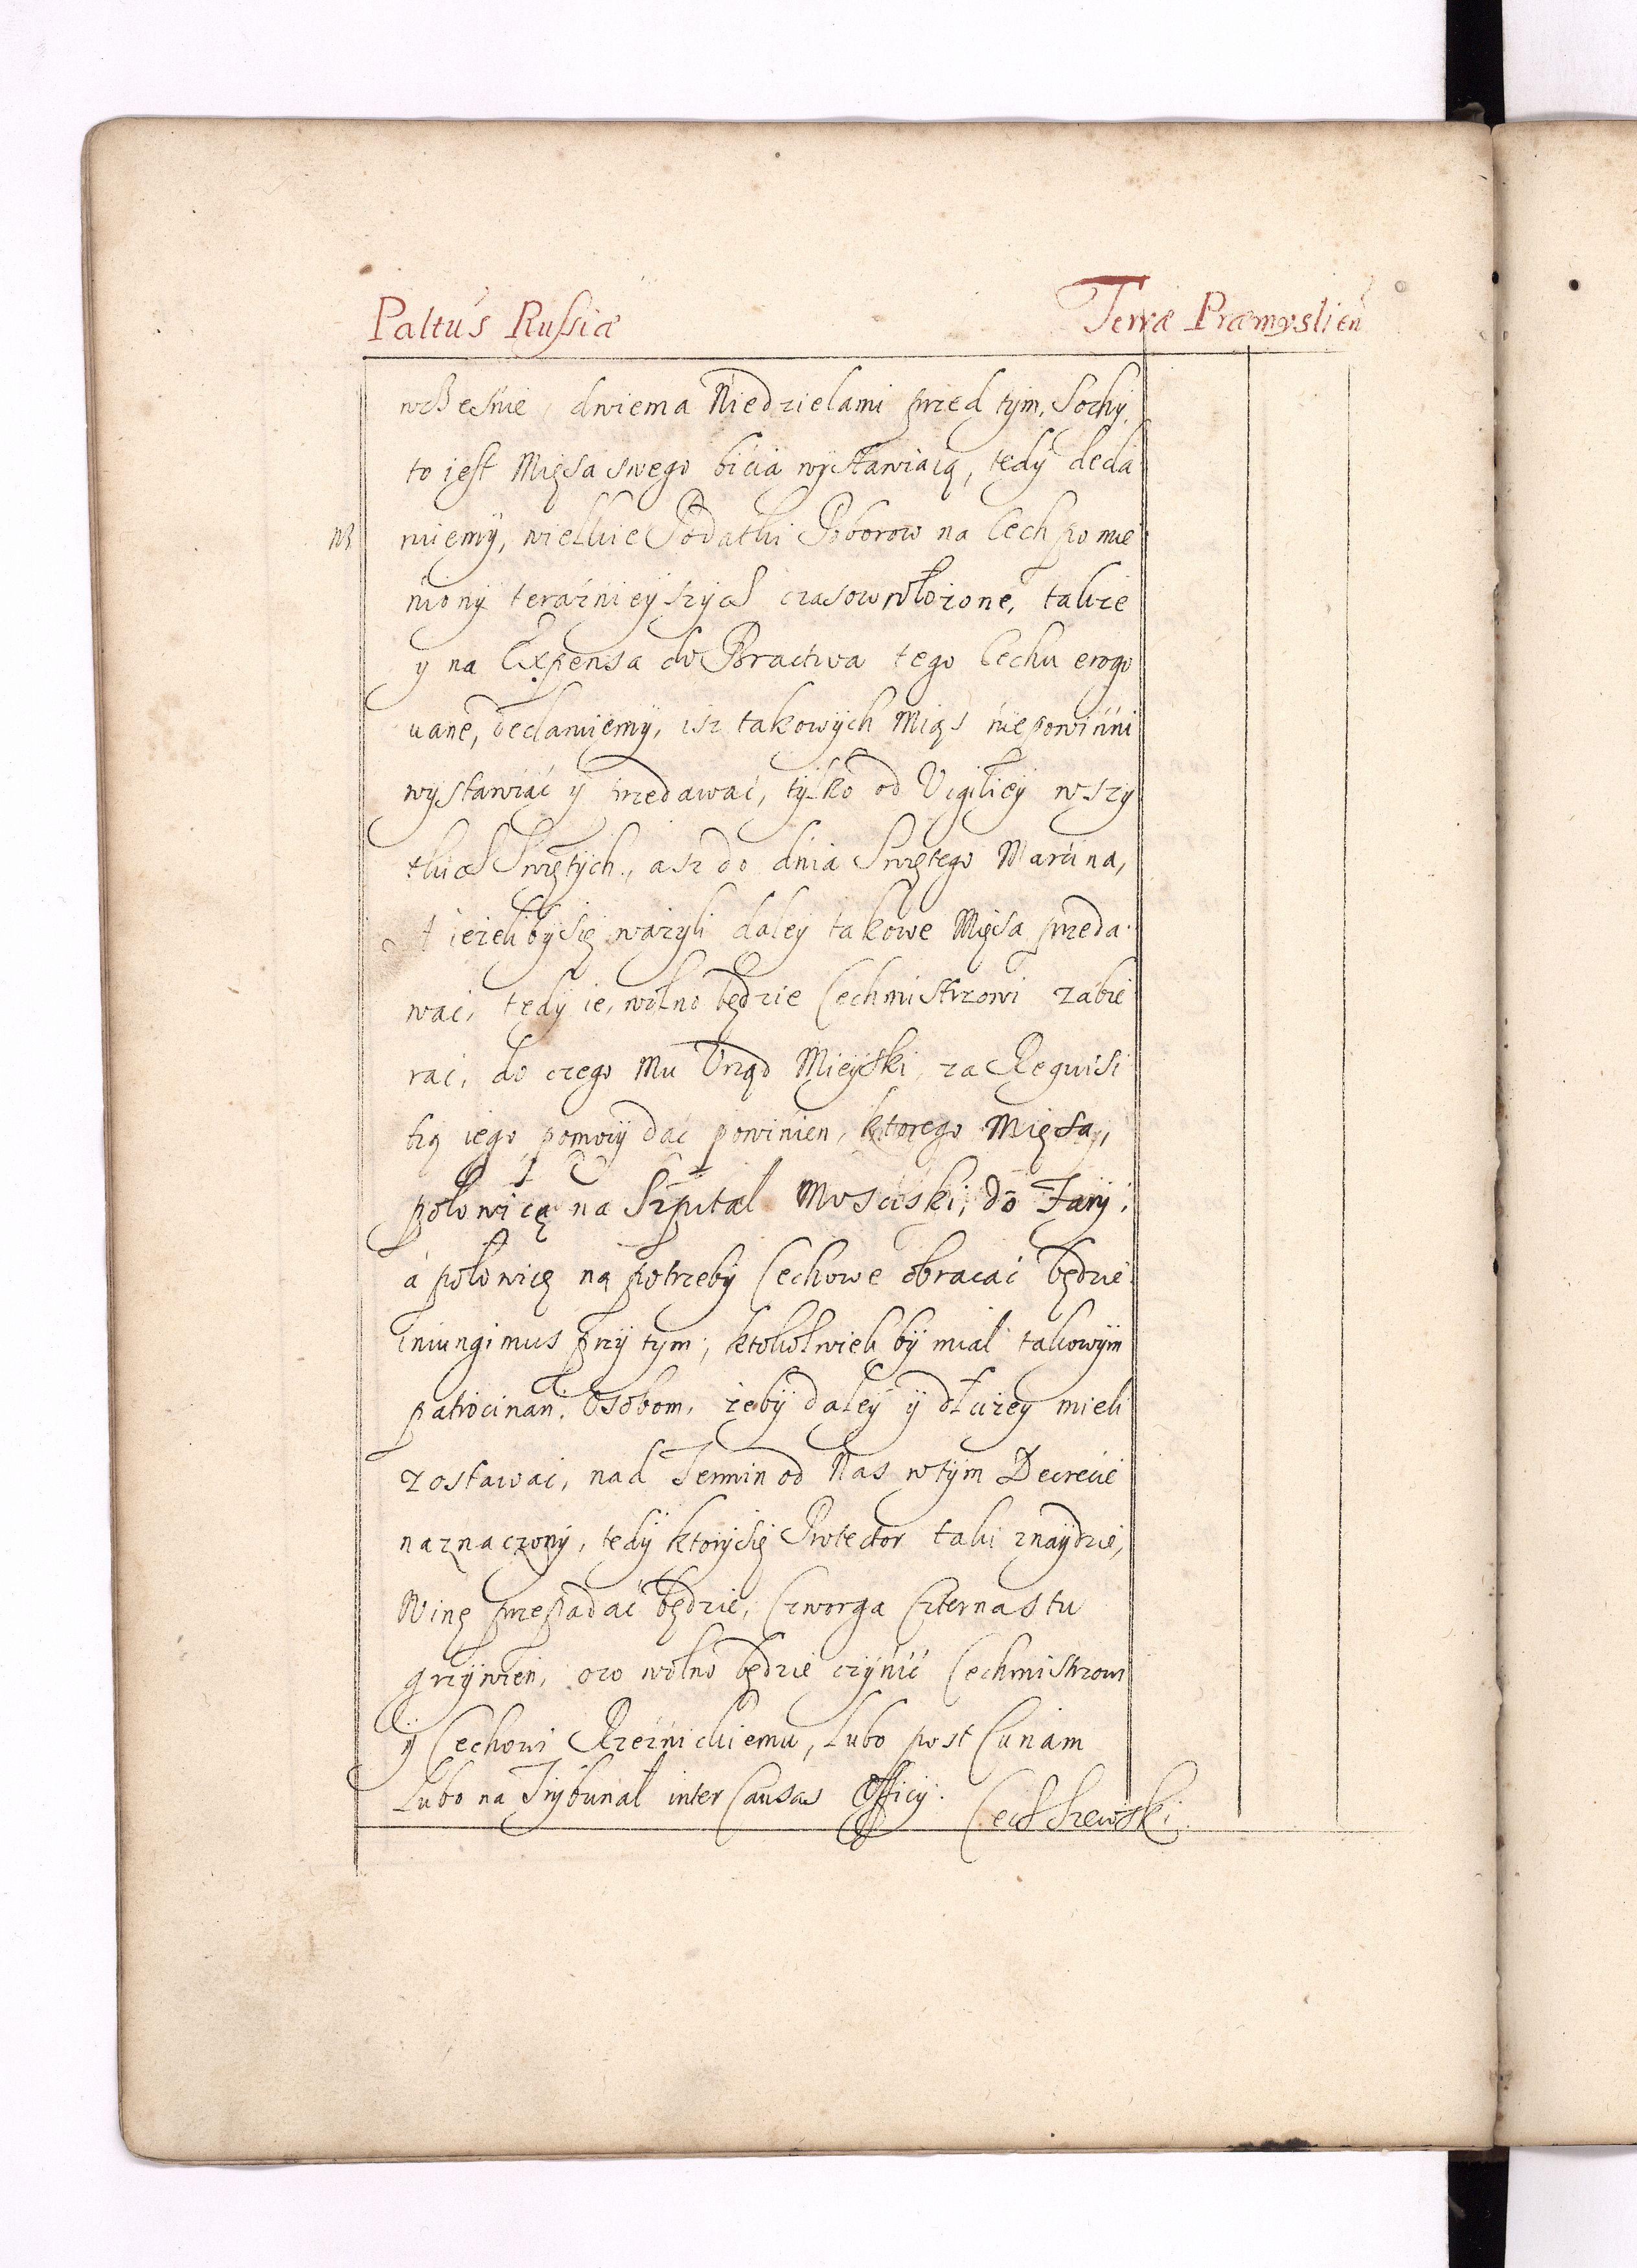 Paltus Russiæ Terræ Præmyslien
wcześnie dwiema Niedzielami przed tym, Sochy
to iest Mięsa swego bicia wystawiaią, tedy decla
ruiemy, wielkie Podatki Poborow na Cech pomie
NB
niony teraźnieyszych czasow włożone, także
y na Expensa do Bractwa tego Cechu erogo
uane, declaruiemy, isz takowych Mięs niepowinni
wystawiać y przedawać, tylko od Vigiliey wszy
tkich Swiętych, asz do dnia Swiętego Marcina,
A ieżeliby się ważyli daley takowe Mięsa przeda
wać, tedy ie, wolno będzie Cechmistrzowi zabie
rać, do czego Mu Urząd Mieyski, za Requisi
tią iego pomocy dać powinien, ktorego Mięsa,
połowicę na Szpital Mosciski, do Fary,
á połowicę na potrzeby Cechowe obracać będzie
iniungimus przy tym, ktokolwiek by miał takowym
patrocinari Osobom, żeby daley y dłużey mieli
zostawać, nad Termin od Nas w tym Decrecie
naznaczony, tedy ktory się Protector taki znaydzie,
Winę przepadać będzie, Czworga Czternastu
grzywien, oco wolno będzie czynić Cechmistrzowi
y Cechowi Rzeźnickiemu, Lubo post Curiam
Lubo na Trybunał inter Causas Officij.
Cech Szewski